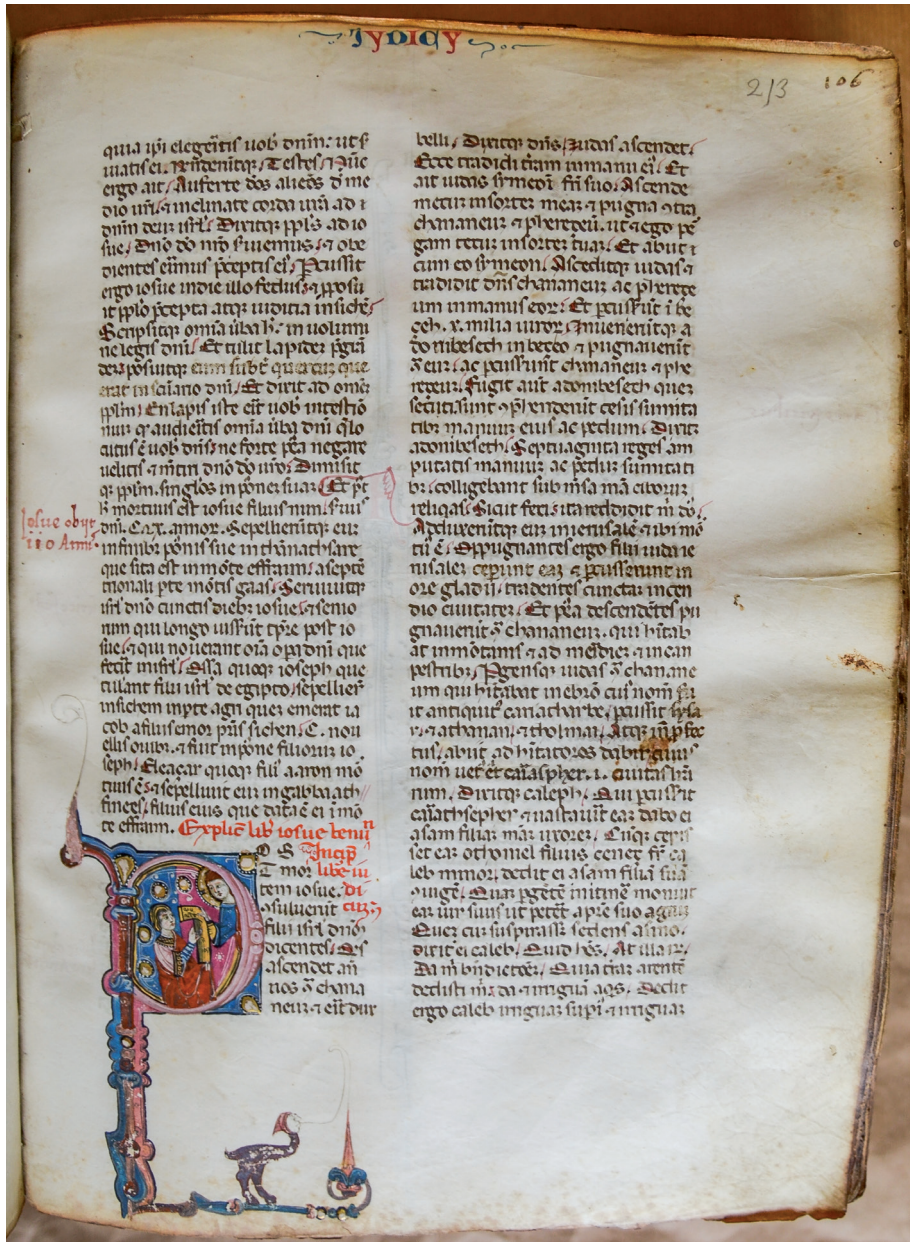 IVDICV
213 106
quia ipi elegeritis uob dnm: ut s
uiatis ei. Rnderuntq; Testes. Nuc
ergo ait. Auferte dos alienos d me
dio uri. inclinate corda ura ad
dnm deum isrl. Dixitq; ppls ad io
sue. Dno do nro seruiemus. obe
dientes erimus pceptis ei. Pcussit
ergo iosue in die illo fedus. pposu
it pplo pcepta atq; iuditia in siche
Scripsitq; omia uba h in uolumi
ne legis dni. Et tulit lapidem pgra
dem posuitq; eum subt quercum que
erat in sctuario dni. Et dixit ad omem
pplm. En lapis iste erit uob in testio
nium q audieritis omia uba dni q lo
cutus e uob dnis ne forte pea negare
uelitis mtiri dno do uro. Dimisit
q; pplm. singlos in posse suam. Et pt
h mortuus est iosue filius num. suus
dni. C. x. annor. Sepellieruntq; eum
Iosue obijt
110 Anni.
in finibus posionis sue in thanathsare
que sita est in monte effraim. a septe
trionali pte montis gaas. Seruiuitq;
isrl dno cunctis diebz iosue. senio
rum qui longo uixerunt tpre post io
sue. qui nouerant oia opa dni que
fecit in isrl. Ossa quoq; ioseph que
tulerant filii isrl de egipto. sepellierunt
in sichem in pte agri quem emerat ia
cob a filiis emor pris sichen. C. nou
ellis ouibz. fuit in possione filiorum io
seph. Eleaçar quoq; fili aaron mo
tuus e. sepellierunt eum in gabbaath
finees. filius eius que data e ei i mo
te effraim. Explic lib iosue benun
OS Incip
T mor libe iu
tem iosue. di
osuluerunt cum
filii isrl dnm
dicentes. Qis
ascendet an
nos chana
neum. erit dux
belli. Dixitq; dns. Iudas ascendet.
Ecce tradidi tram in manu ei. Et
ait iudas symeoni fri suo. Ascende
mecum in sorte mea. pugna contra
chananeum pheredeum. ut ego per
gam tecum in sorte tuam. Et abiit
cum eo symeon. Asceditq; iudas
tradidit dns chananeum ac pherege
um in manus eor. Et pcusserunt i be
çech. x. milia uiror. Inueneruntq; a
donibesech in beçeo pugnauerunt
eum. ac pcusserunt chananeum phe
regeum. Fugit aut adonibesech quem
secuti sunt phenderunt cesis summita
tibz manuum eius ac pedum. Dixit
adonibesech. Septuaginta reges am
putatis manuum ac pedum sumitati
bz. colligebant sub mensa mea ciborum
reliqas. Sicut feci. ita reddidit m ds.
Adduxeruntq; eum in ierusale. ibi mo
tu e. Oppugnantes ergo filii iuda ie
rusalem ceperunt eam. pcusserunt in
ore gladii. tradentes cunctam incen
dio ciuitatem. Et pea descendetes pu
gnauerunt chananeum. qui hitab
at in motanis. ad meridiem. in can
pestribz. Pgensq; iudas chanane
um qui hitabat in ebron cuius nom fu
it antiquitus cariatharbe. pcussit sysa
i. athanan. tholmai. Atq; in p fec
tus. abiit ad hitatores dabir cuius
nom uet erat cariaspher. i. ciuitas litte
rarum. Dixitq; caleph. Qui pcusserit
cariathsepher. uastauerit eam. dabo ei
asam filiam meam uxorem. Cumq; cepis
set eam othoniel filius cenez fr ca
leb minor. dedit ei asam filia sua
coniugem. Quam pgentem in itinere monuit
eam uir suus ut peteret a pre suo agrum
Quem cum suspirasset sedens asino.
dixit ei caleb. Quid hes. At illa r.
Da m bndictoem. Quia tram arentem
dedisti m. da irriguam aqs. Dedit
ergo caleb irriguum supi irriguum